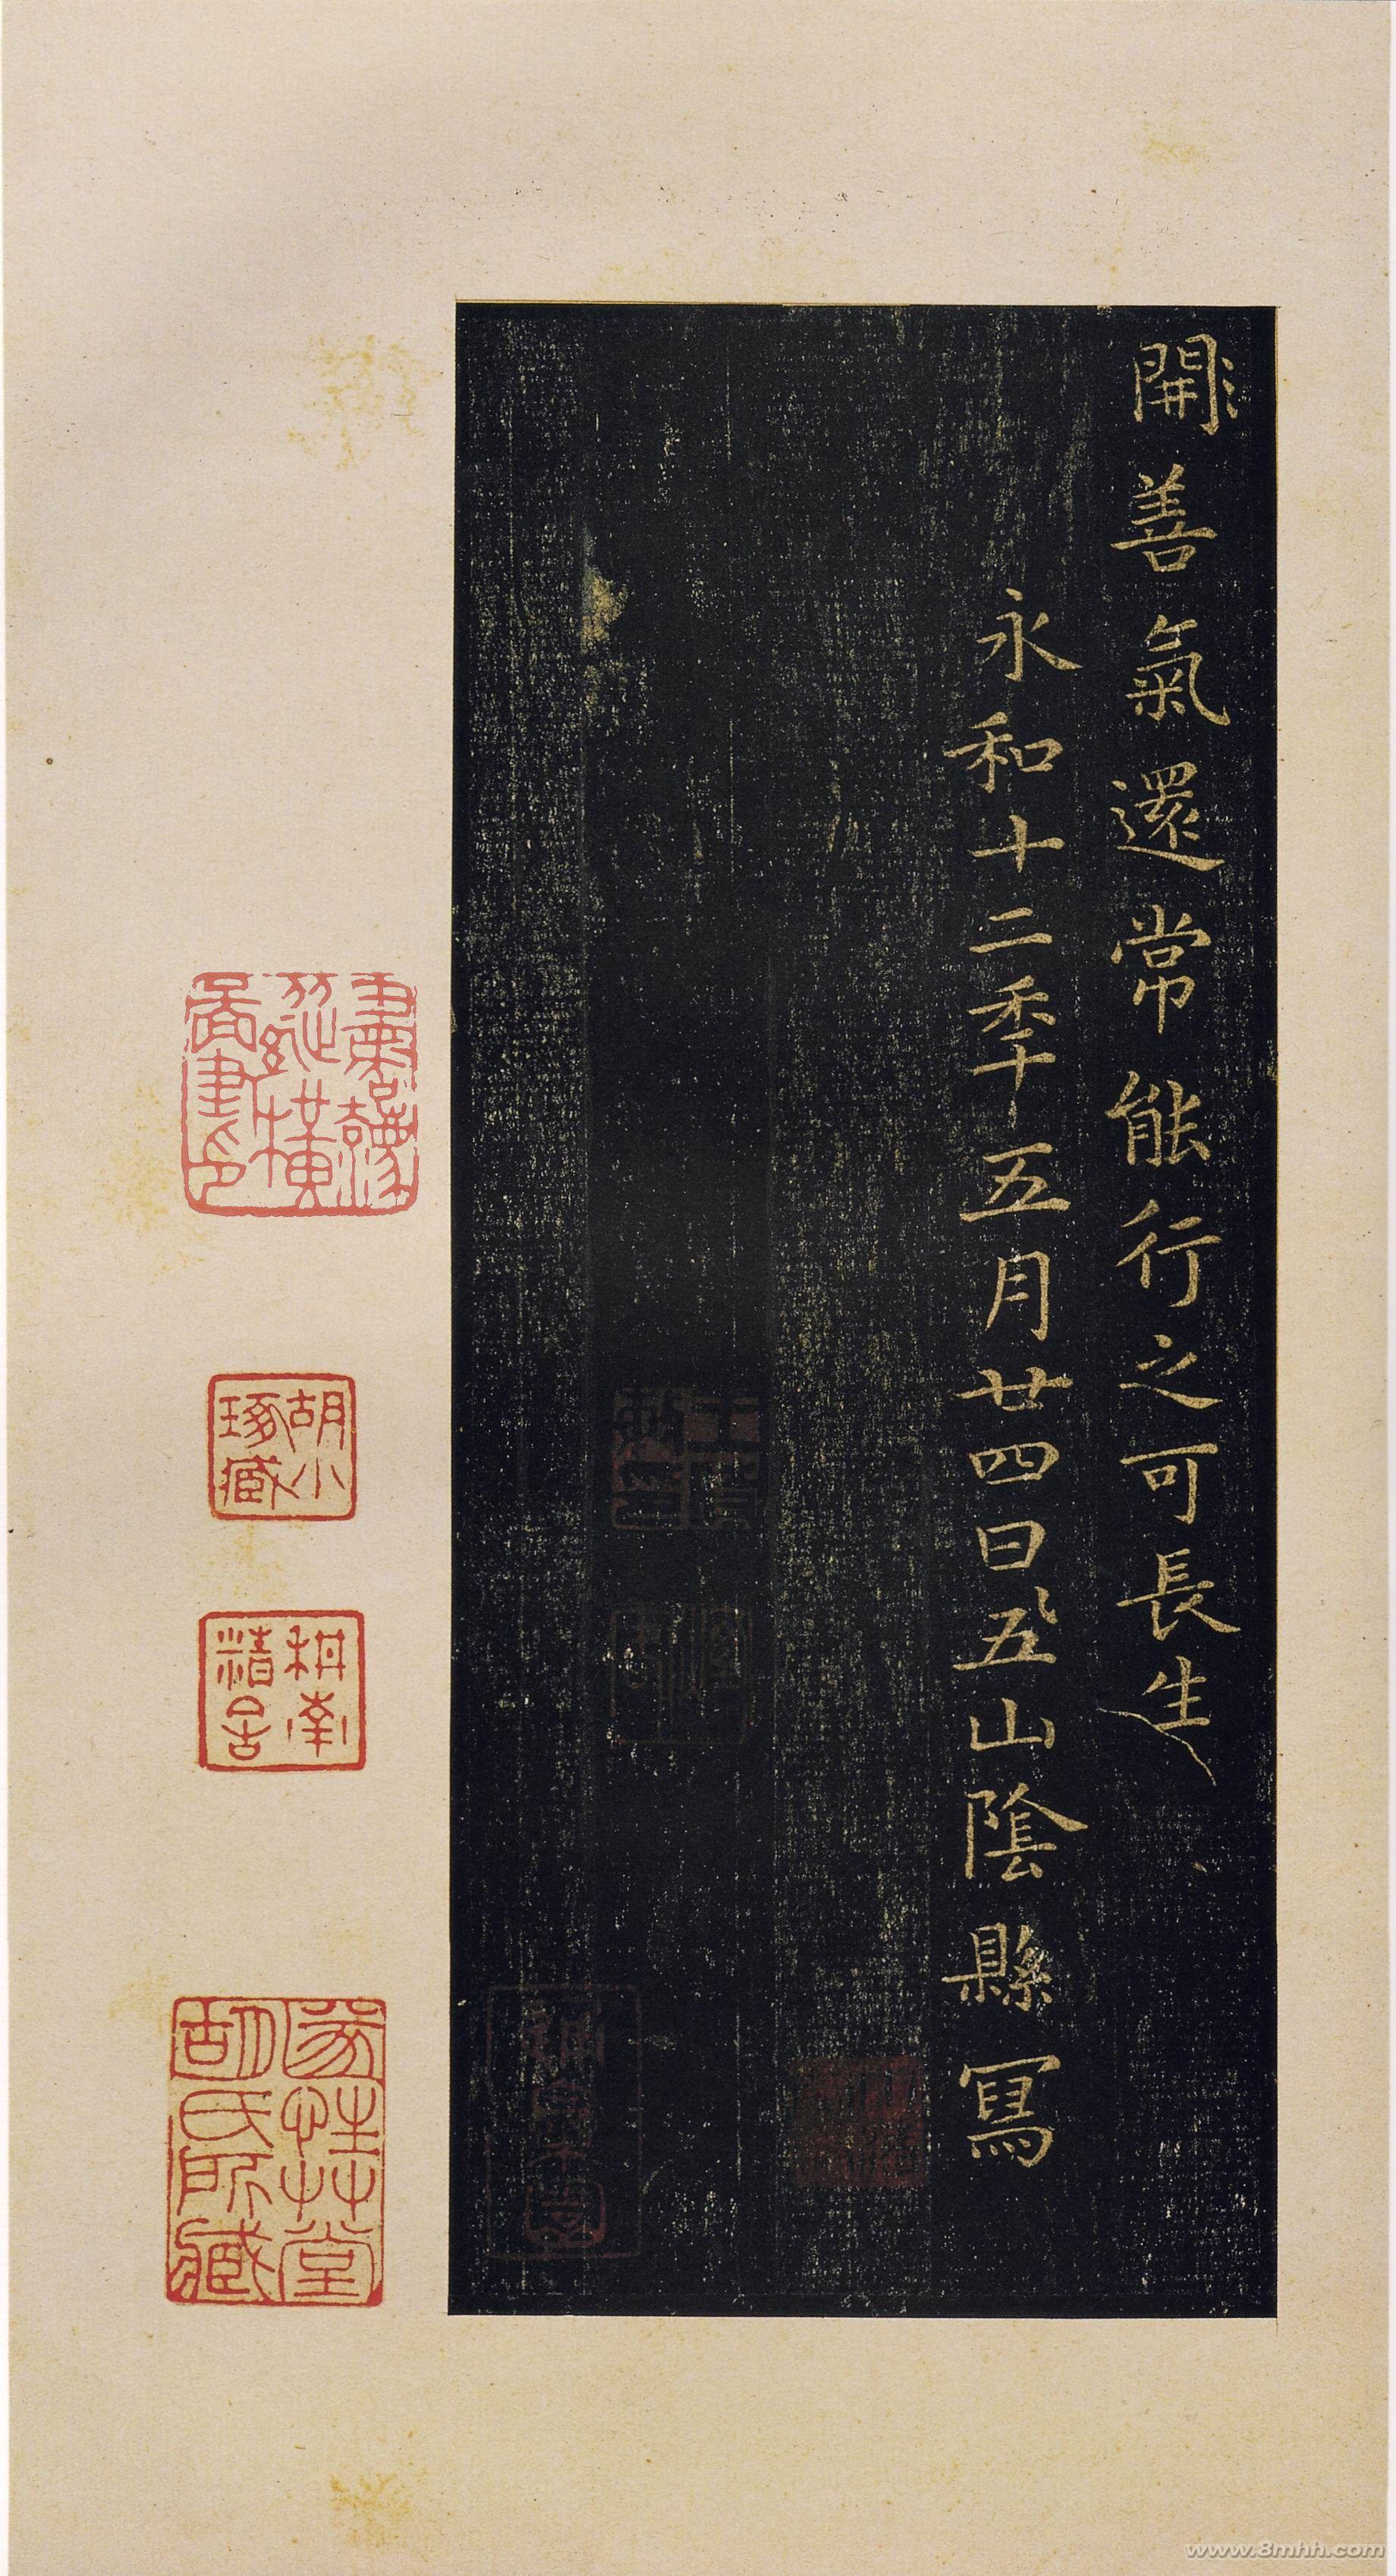 開善氣還常能行之可長生
永和十二秊五月廿四日五山陰縣寫
胡小
琢藏
胡氏所藏
www.8mhh.com